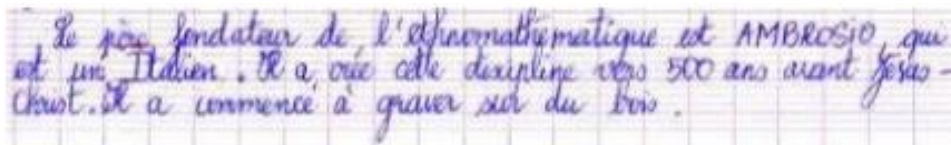 Le père fondateur de l'ethnomathématique est AMBROSIO, qui
est un Italien. Il a crée cette discipline vers 500 ans avant Jésus-
Christ. Il a commencé à graver sur du bois.